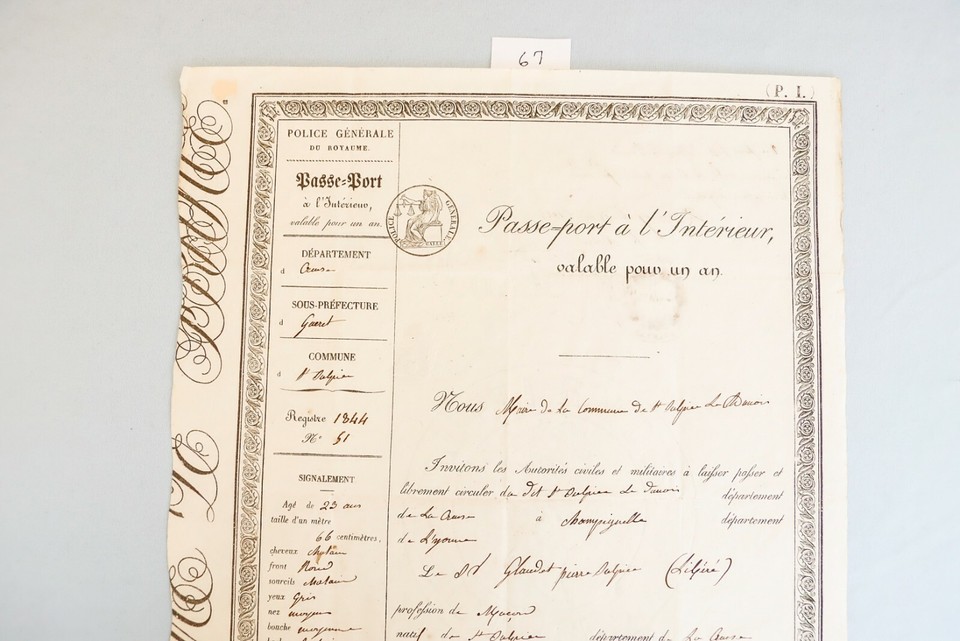 67
(P. I.)
POLICE GÉNÉRALE
DU ROYAUME.
Passe=Port
à l'Intérieur,
valable pour un an.
DÉPARTEMENT
d Creuse
SOUS-PRÉFECTURE
d Gueret
COMMUNE
d St Sulpice
Registre 1844
N° 51
SIGNALEMENT
Agé de 23 ans
taille d'un mètre
66 centimètres,
cheveux Chatain
front Rond
sourcils Chatain
yeux Gris
nez moyen
bouche moyenne
POLICE GÉNÉRALE
Passe=port à l'Intérieur,
valable pour un an.
Nous Maire de La Commune de St Sulpice Le Dunois
Invitons les Autorités civiles et militaires à laisser passer et
librement circuler du dit St Sulpice Le Dunois département
de La Creuse à Champignelle département
de L'yonne
Le Sr Glaudet pierre Sulpice (Libéré)
profession de Maçon
natif de St Sulpice département de La Creuse